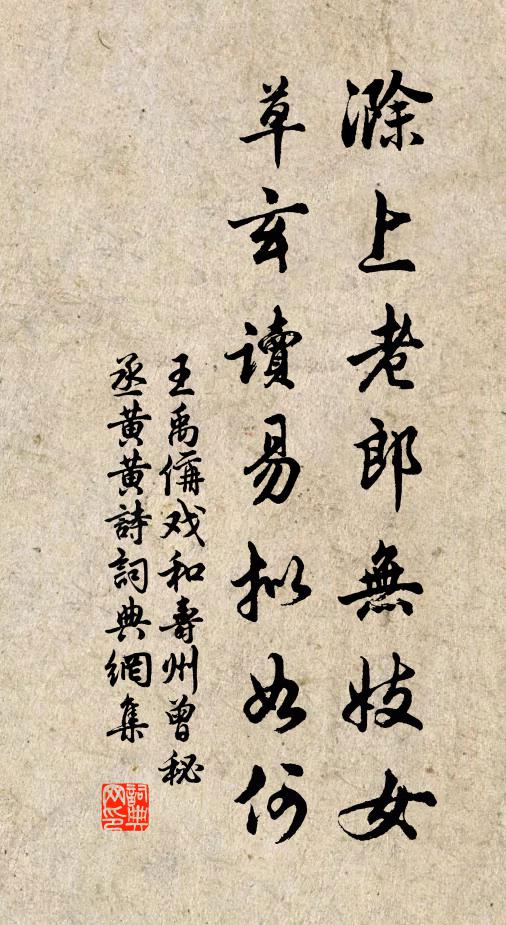 滁上老郎無妓女
草玄讀易拟如何
王禹偁戏和壽州曾秘
丞黄黄詩詞典網集
詞典
网印